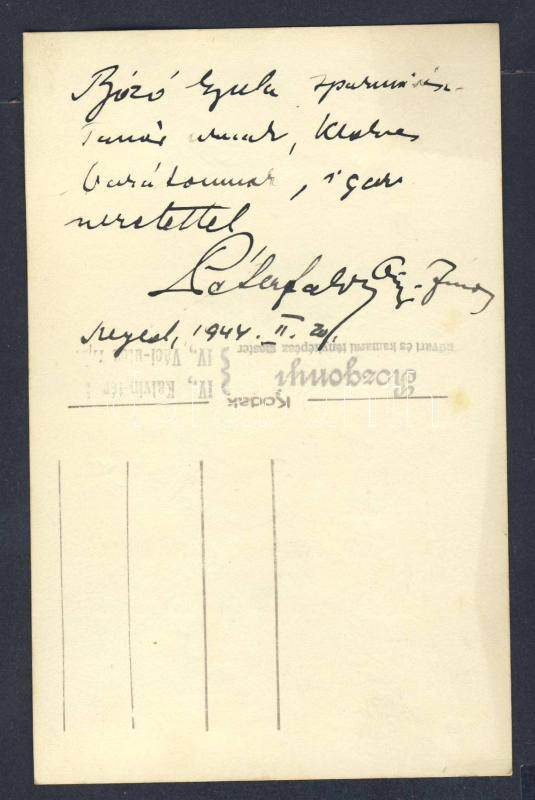 Bózó Gyula
tanár urnak, kedves
barátomnak, igaz
szeretettel
Páterfalvy
Szeged, 1944. II. 20.
udvari és kamarai fényképész mester
Rozgonyi
IV., Váci-utca
IV., Kálvin-tér
Kodak
darabanth